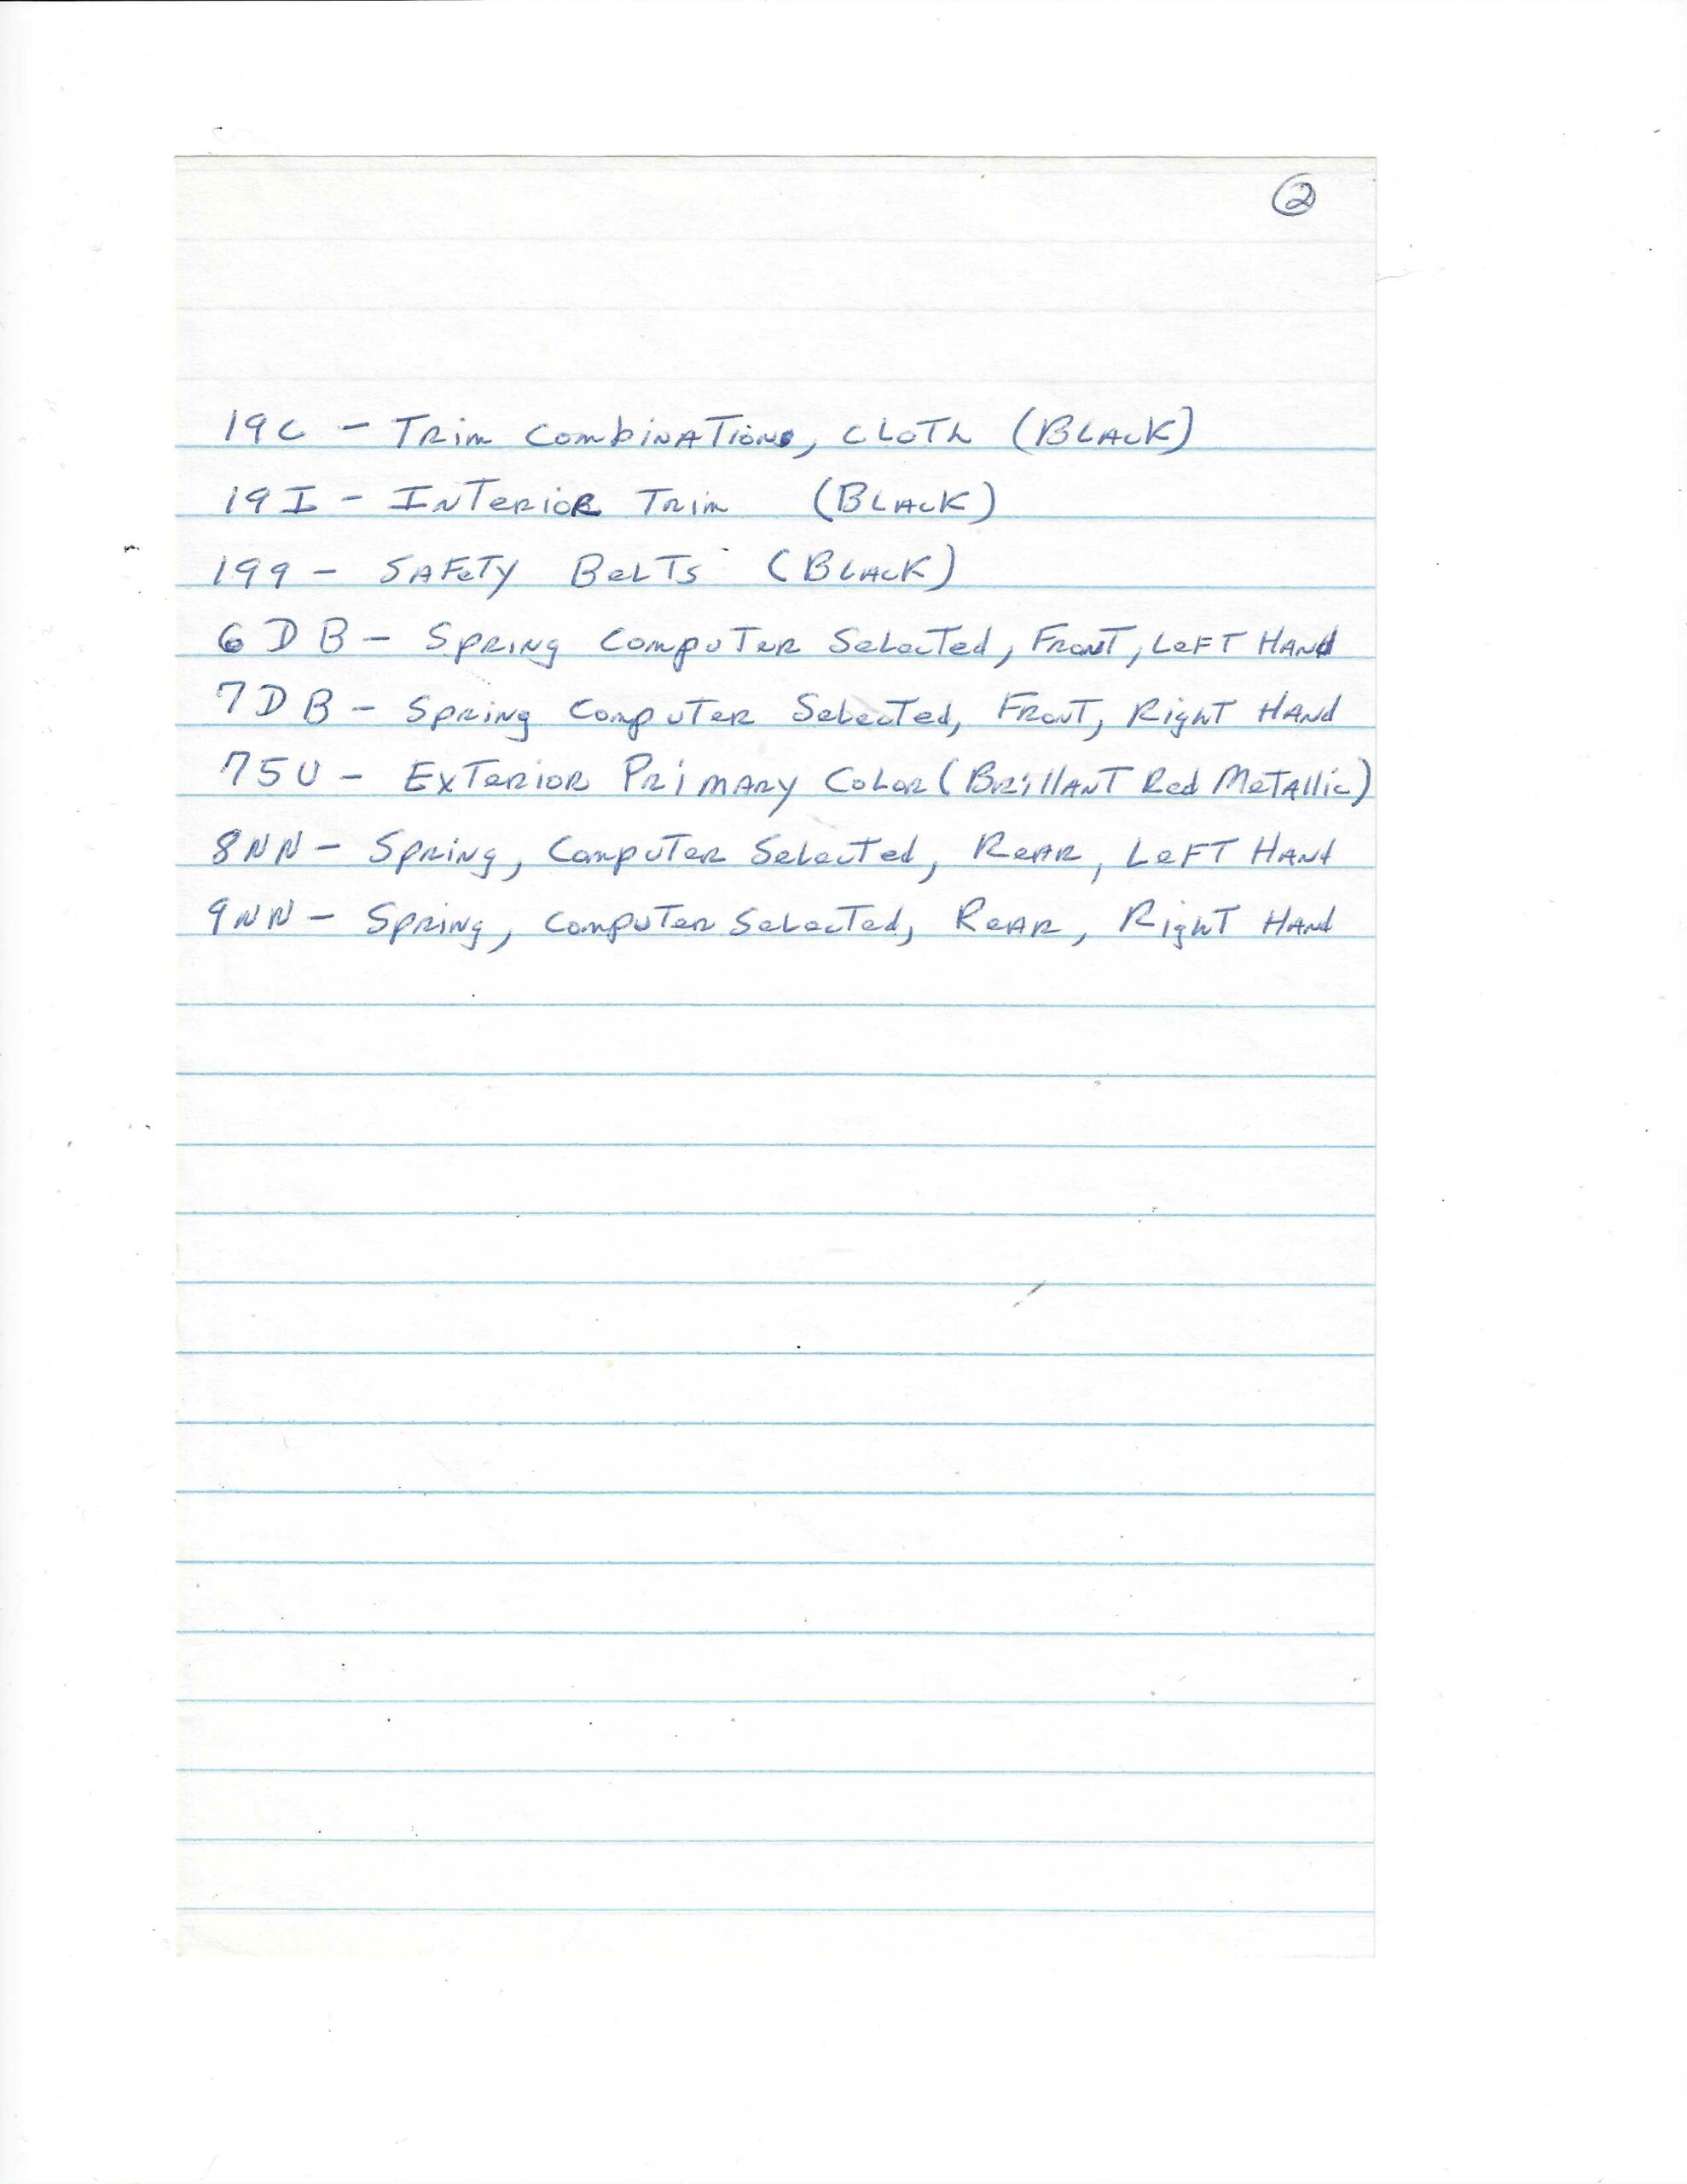 2
19C - Trim Combinations, CLOTH (BLACK)
19I - Interior Trim (BLACK)
199 - SAFETY BELTS (BLACK)
6DB - Spring Computer Selected, Front, LEFT HAND
7DB - Spring Computer Selected, Front, Right HAND
75U - Exterior Primary Color (Brillant Red Metallic)
8NN - Spring, Computer Selected, Rear, LEFT HAND
9NN - Spring, Computer Selected, Rear, Right HAND